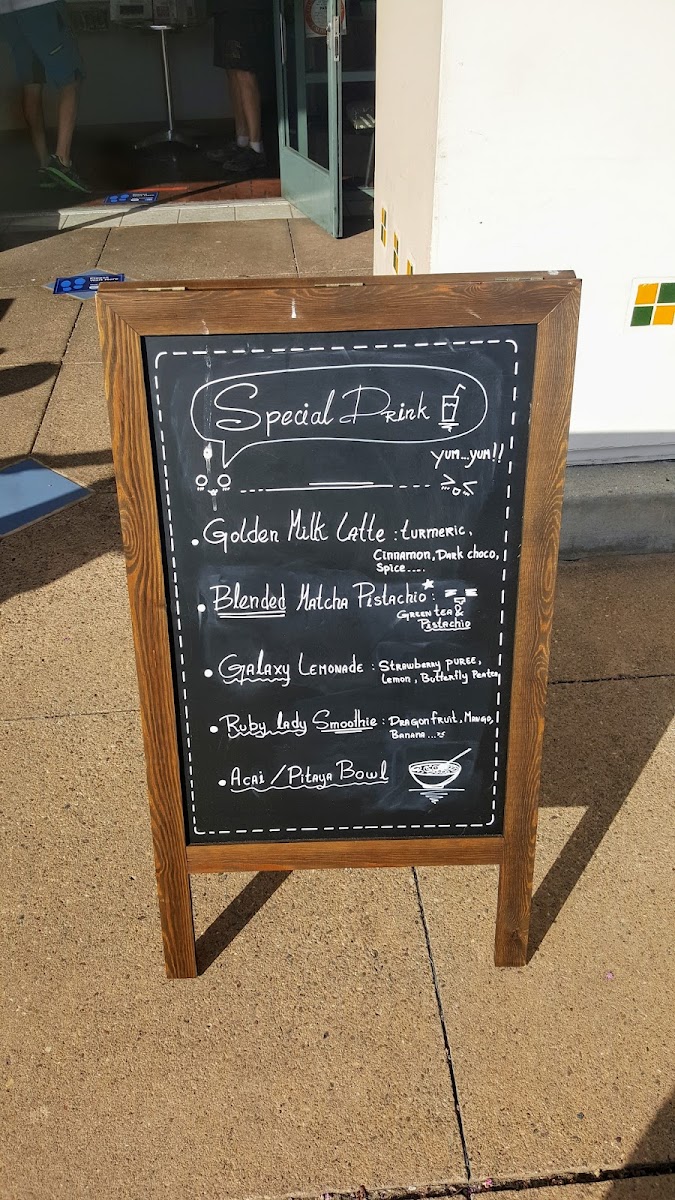 Special Drink
Yum...yum!!
Golden Milk Latte : Turmeric,
Cinnamon, Dark choco,
Spice....
Blended Matcha Pistachio :
Green tea &
Pistachio
Galaxy Lemonade : Strawberry puree,
Lemon, Butterfly Peatea
Ruby lady Smoothie : Dragon fruit, Mango,
Banana...
Acai / Pitaya Bowl